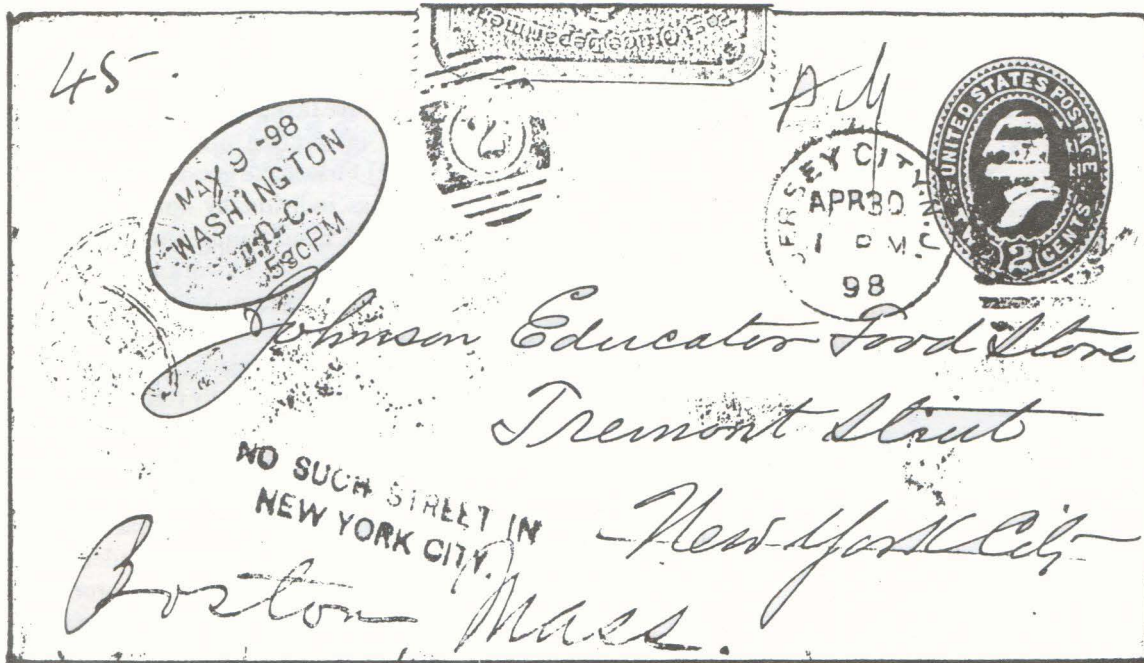 45.
Post Office Department
MAY 9-98
WASHINGTON
D.C.
530PM
2
JERSEY CITY, N.J.
APR 30
1 PM
98
UNITED STATES POSTAGE
TWO 2 CENTS
Johnson Educator Food Store
Tremont Street
New York City
NO SUCH STREET IN
NEW YORK CITY.
Boston Mass.